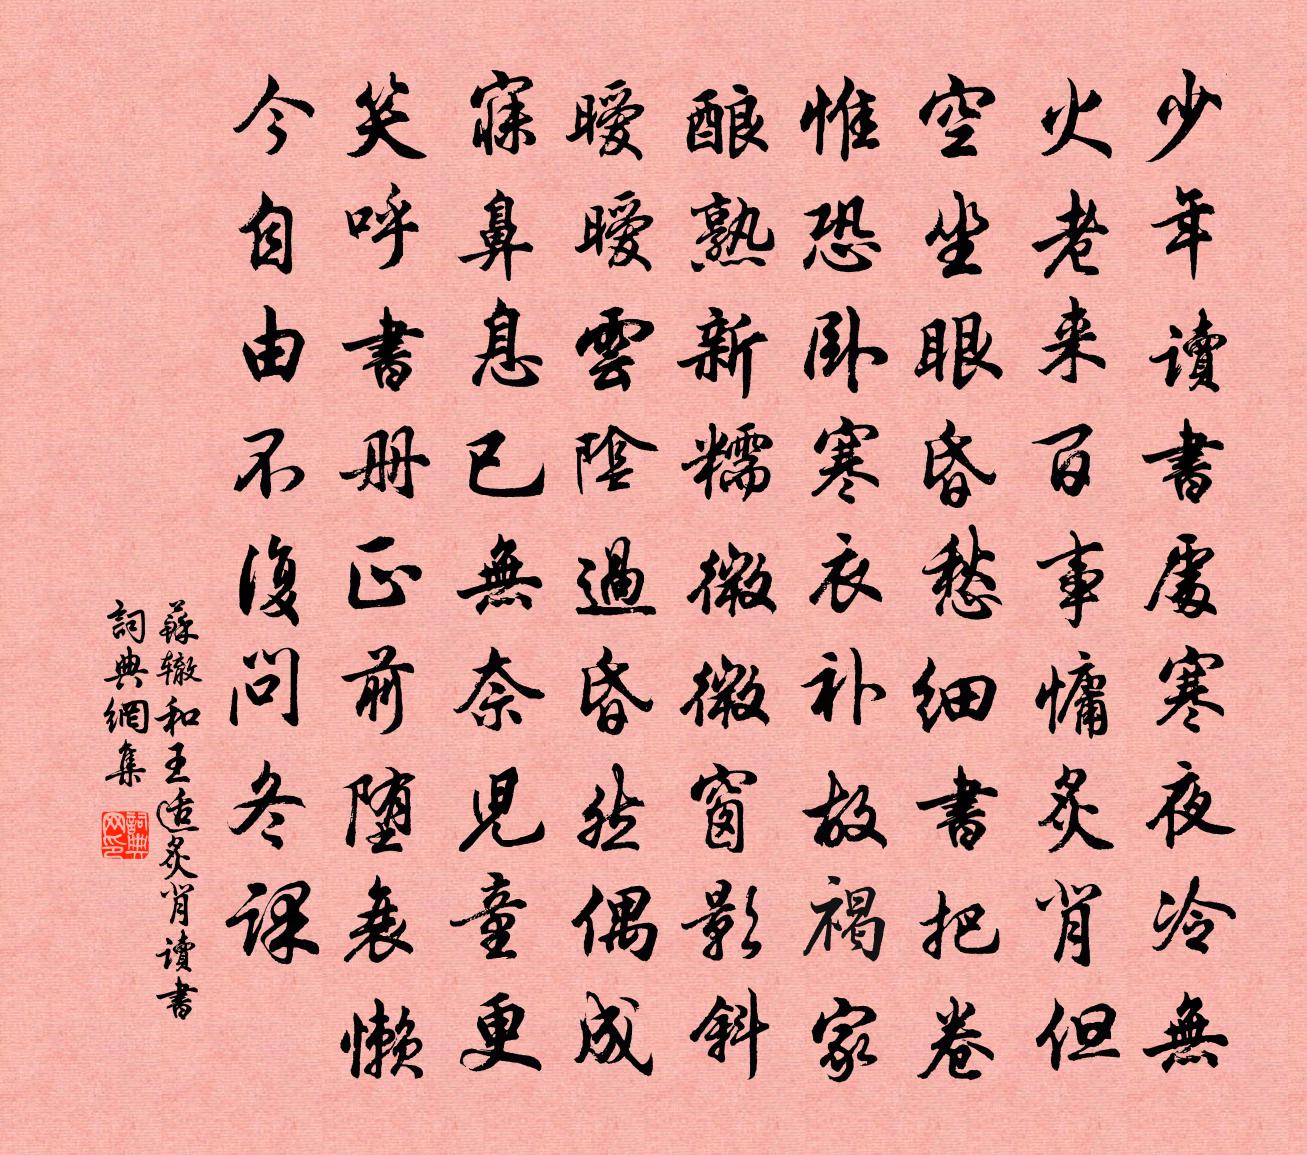 少年讀書處寒夜冷無
火老来百事慵炙背但
空坐眼昏愁细書把卷
惟恐卧寒衣补故褐家
酿熟新糯微微窗影斜
曖曖雲陰過昏然偶成
寐鼻息已無奈児童更
笑呼書册正前堕衰懒
今自由不復问冬课
蘇辙和王适炙背讀書
詞典網集
詞典网印